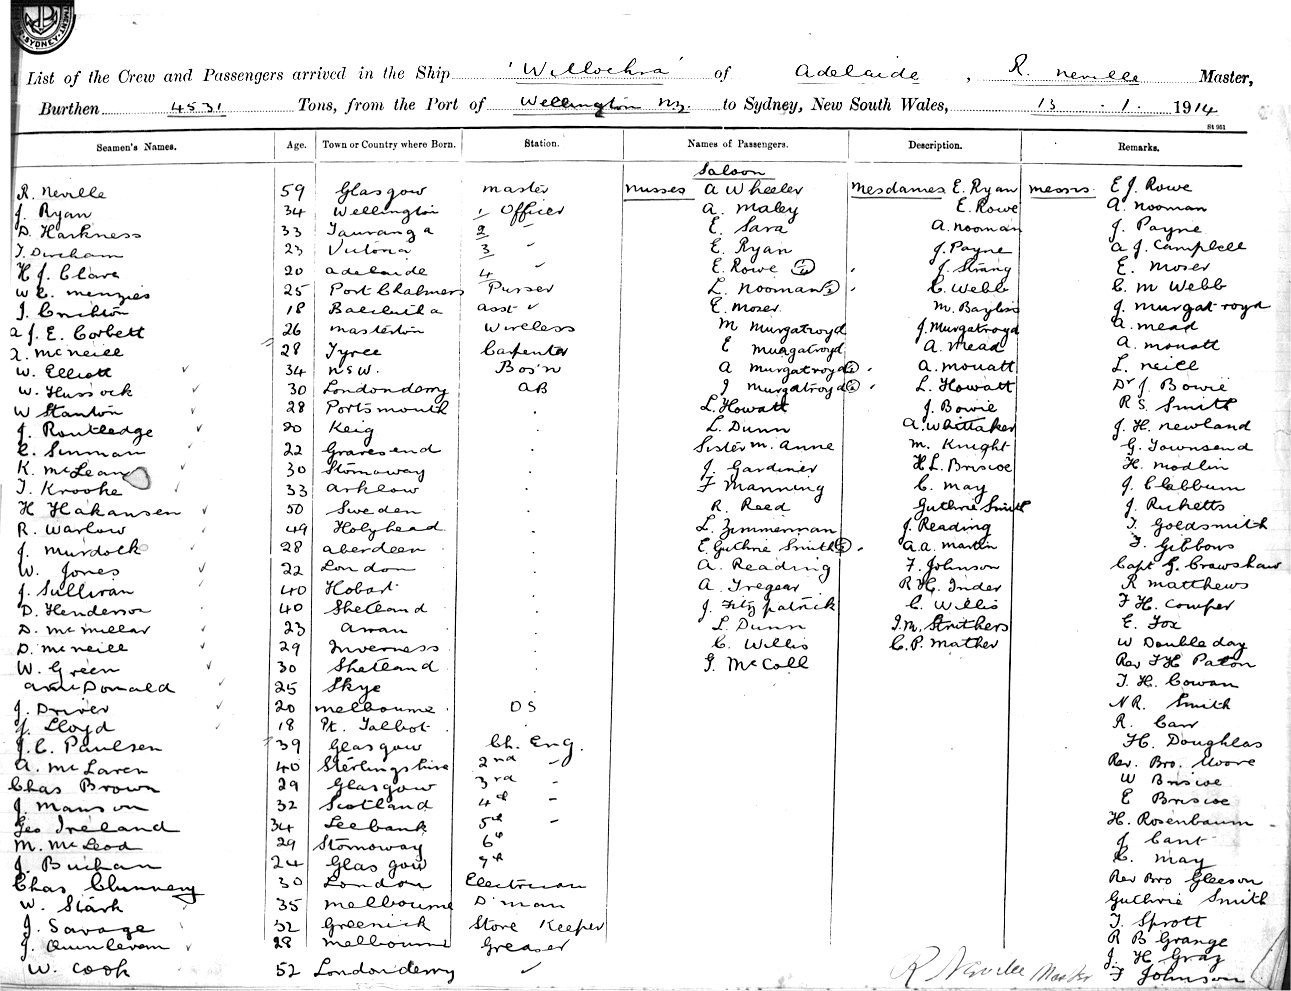 SYDNEY
List of the Crew and Passengers arrived in the Ship 'Willochra' of Adelaide, R. Neville Master,
Burthen 4531 Tons, from the Port of Wellington N.Z. to Sydney, New South Wales, 13.1.1914
St 961
Seamen's Names. Age. Town or Country where Born. Station. Names of Passengers. Description. Remarks.
Saloon
R. Neville 59 Glasgow Master Misses A Wheeler Mesdames E. Ryan Messrs. E J. Rowe
J. Ryan 34 Wellington 1 Officer A. Maley E. Rowe A. Nooman
D. Harkness 33 Tauranga 2 " E. Sara A. Nooman J. Payne
T. Dincham 23 Victoria 3 " E. Ryan J. Payne A J. Campbell
H J. Clare 20 Adelaide 4 " E. Rowe J. Strang E. Moser
W C. Menzies 25 Port Chalmers Purser L. Nooman C. Webb C. M Webb
J. Crichton 18 Asst " E. Moser M. Bayliss J. Murgatroyd
A J. E. Corbett 26 Masterton Wireless M Murgatroyd J. Murgatroyd A. Mead
McNeill 28 Tyree Carpenter E Murgatroyd A. Mead A. Mouatt
W. Elliott 34 N.S.W. Bos'n A Murgatroyd A. Mouatt L. Neill
W. Hussock 30 Londonderry AB J Murgatroyd L. Howatt Dr J. Bowie
W Stanton 28 Portsmouth L. Howatt J. Bowie R S. Smith
J. Routledge 20 Keig L. Dunn A. Whittaker J. H. Newland
C. Sinman 22 Gravesend Sister M. Anne M. Knight G. Townsend
K. McLean 30 Stornoway J. Gardiner H L. Briscoe H. Modlin
T. Krooke 33 Arklow F Manning C. May J. Clabburn
H Hakansen 50 Sweden R. Reed Guthrie Smith J. Ricketts
R. Warlow 49 Holyhead L. Zimmerman J. Reading T. Goldsmith
J. Murdock 28 Aberdeen E. Guthrie Smith A. A. Martin J. Gibbons
W. Jones 22 London A. Reading F. Johnson Capt G. Crawshaw
J. Sullivan 40 Hobart A Tregear R H. Inder R Matthews
D. Henderson 40 Shetland J. Fitzpatrick C. Willis F H. Cowper
D. McMillar 23 Arran L Dunn J. M. Struthers E. Fox
D. McNeill 29 Inverness C. Willis C. P. Mather W Doubleday
W. Green 30 Shetland J. McColl Rev F H Paton
A McDonald 25 Skye T. H. Cowan
J. Driver 20 Melbourne O S N R. Smith
J. Lloyd 18 Pt. Talbot R. Carr
J. C. Paulsen 39 Glasgow Ch. Eng. H. Doughlas
A. McLaren 40 Sterlingshire 2nd " Rev. Bro. Moore
Chas Brown 29 Glasgow 3rd " W Briscoe
J. Manson 32 Scotland 4th " E Briscoe
Geo Ireland 34 Leebank 5th " H. Rosenbaum
M. McLeod 29 Stornoway 6th J Cant
J. Buchan 24 Glasgow 7th C. May
Chas Clunnery 30 London Electrician Rev Bro Gleeson
W. Stark 35 Melbourne D'man Guthrie Smith
J. Savage 32 Greenick Store Keeper T. Sprott
J. Quinlevan 28 Melbourne Greaser R B Grange
W. Cook 52 Londonderry " J. H Gray
R Neville Master F Johnson